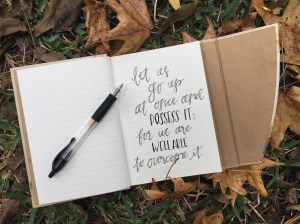 let us
go up
at once and
POSSESS IT;
for we are
WELL ABLE
to overcome it